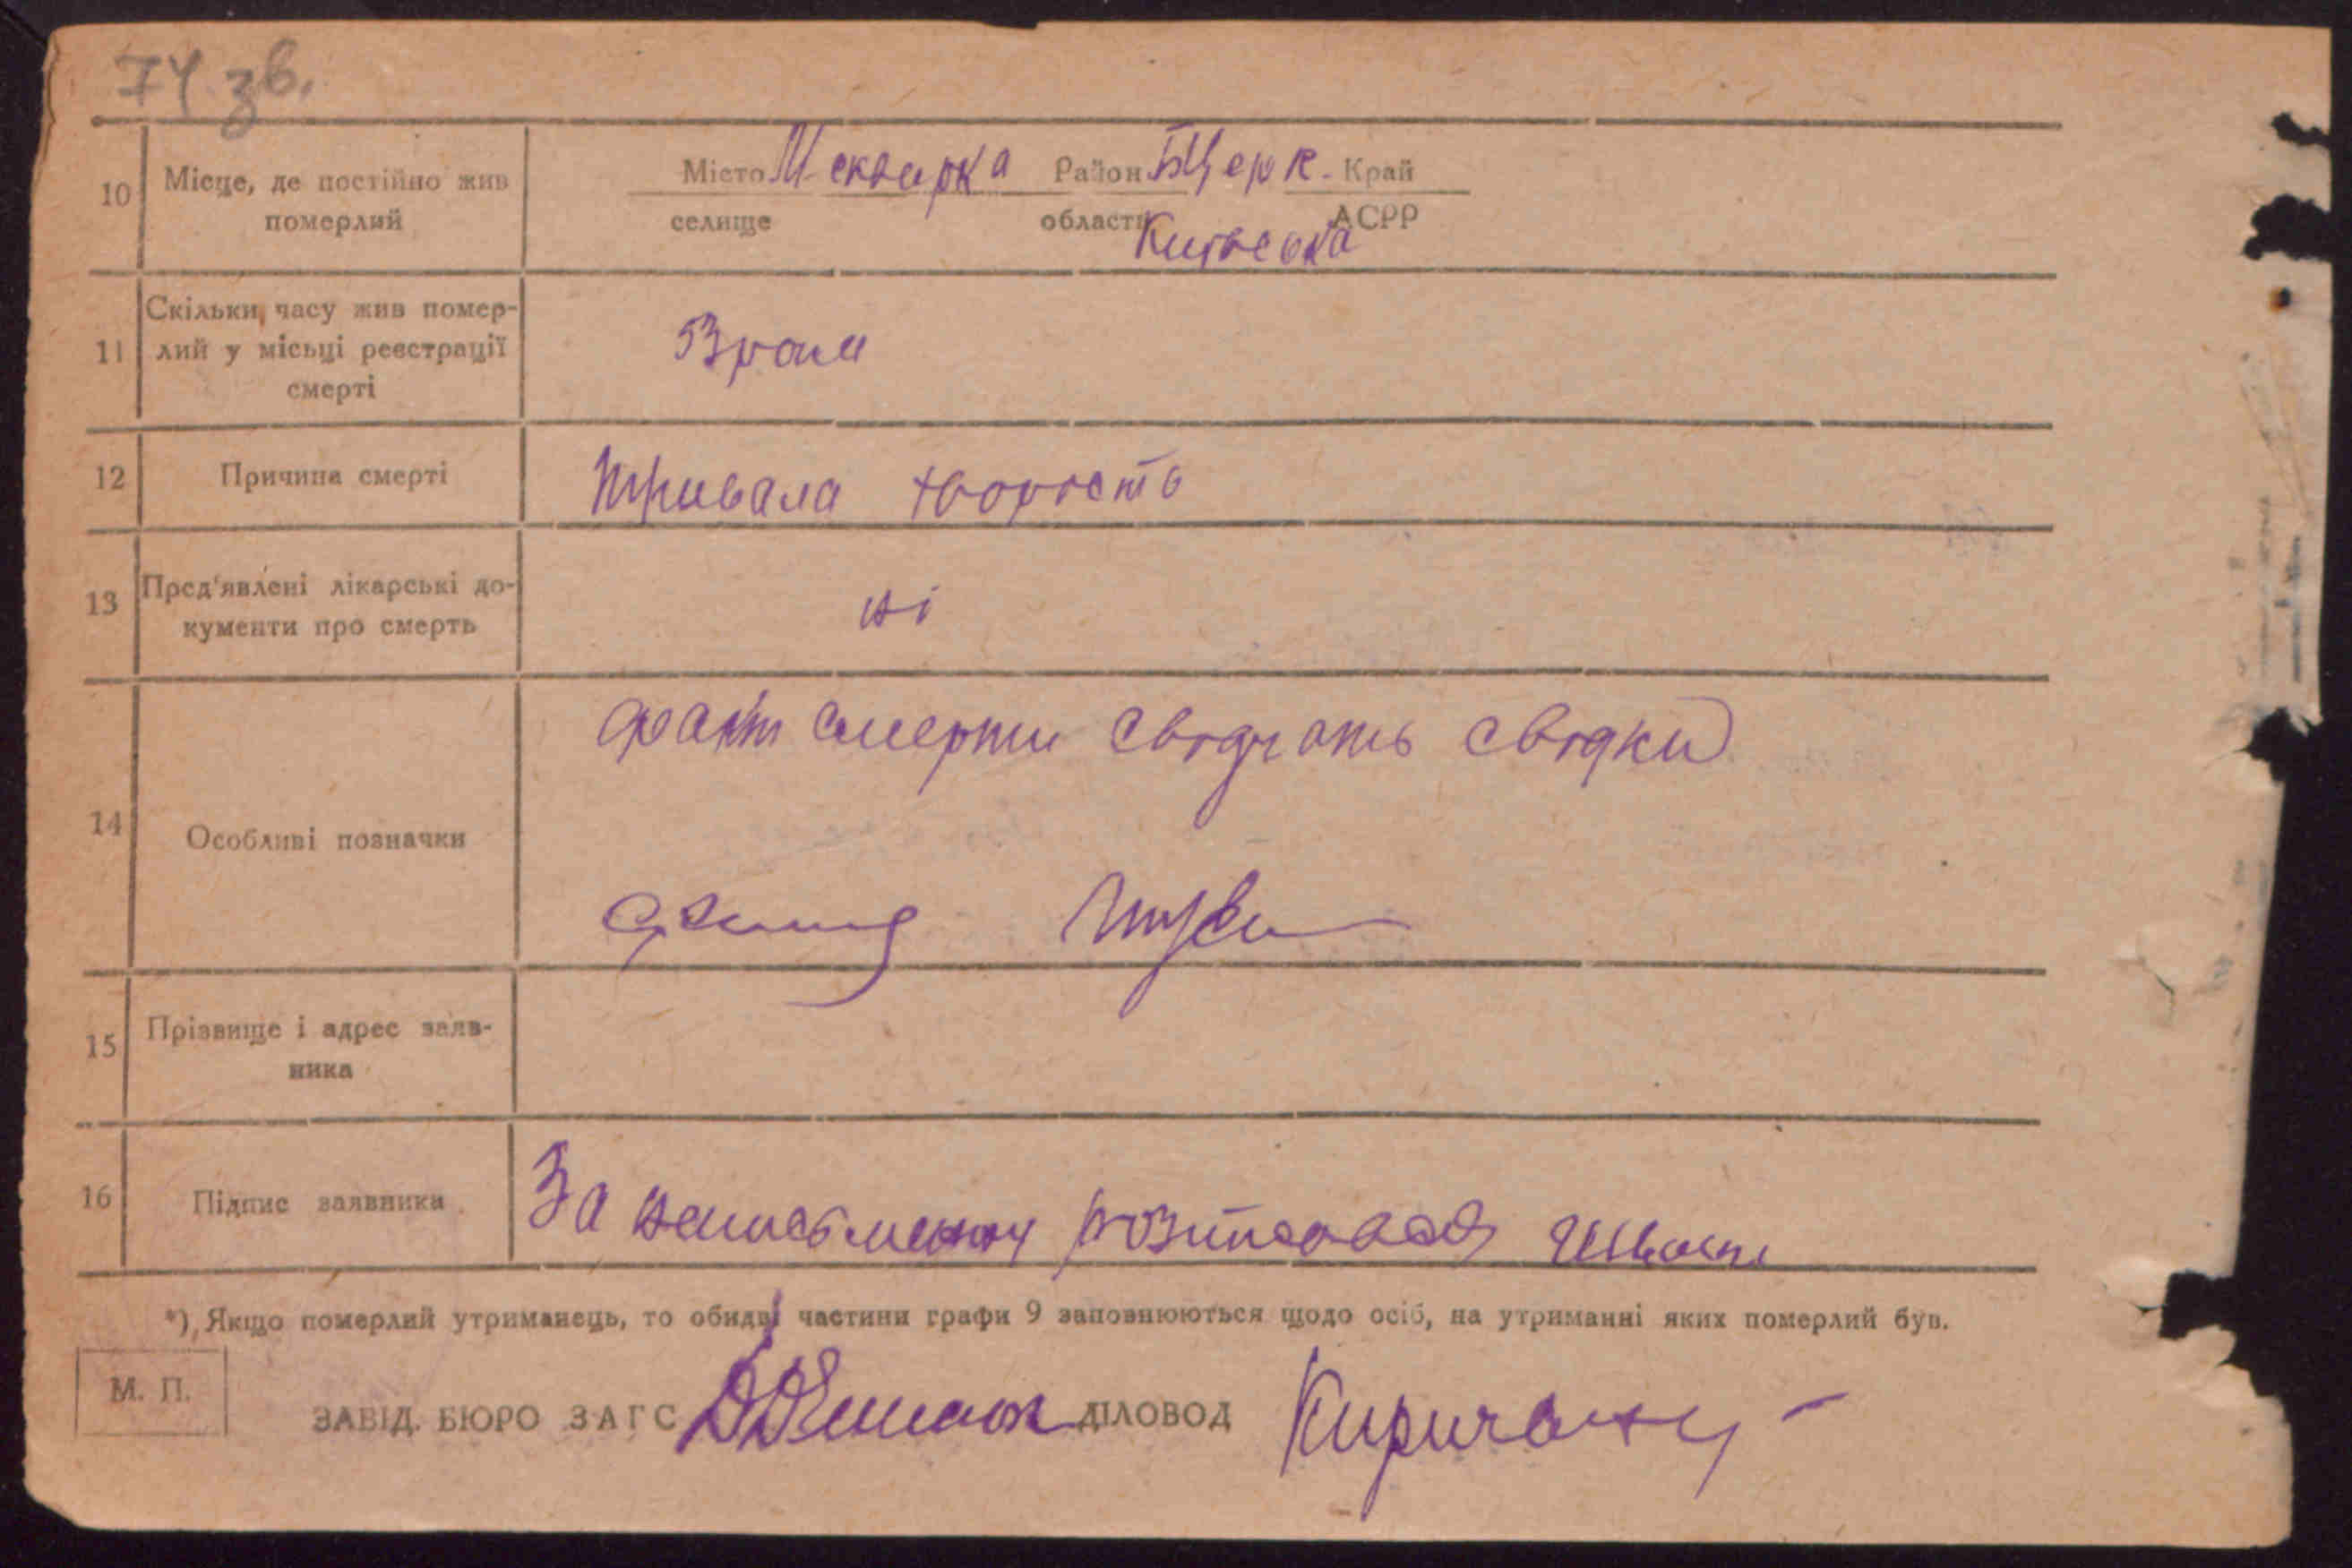 74 зв.
10 Місце, де постійно жив померлий
Місто М. Сквирка Район БЦерк. Край
селище області Київська АСРР
11 Скільки часу жив помер-
лий у місьці реєстрації
смерті
53 роки
12 Причина смерті тривала хворость
13 Пред'явлені лікарські до-
кументи про смерть
ні
факт смерти свідчать свідки
14 Особливі позначки
15 Прізвище і адрес заяв-
ника
16 Підпис заявника За неписьменну розписався
*) Якщо померлий утриманець, то обидві частини графи 9 заповнюються щодо осіб, на утриманні яких померлий був.
М. П.
ЗАВІД. БЮРО ЗАГС ДІЛОВОД